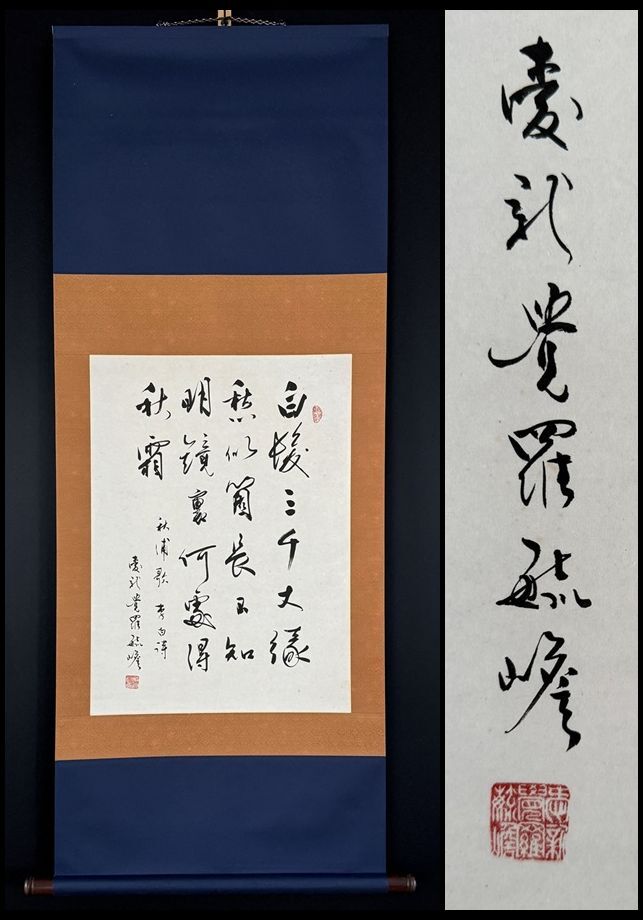 白髮三千丈緣
愁似箇長不知
明鏡裏何處得
秋霜
秋浦歌 李白詩
愛新覺羅毓嶦
愛新覺羅毓嶦